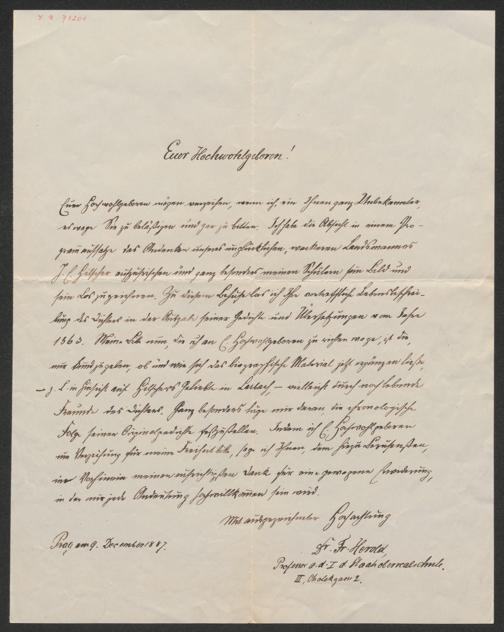 Euer Hochwohlgeboren!
Euer Hochwohlgeboren mögen verzeihen, wenn ich, ein Ihnen ganz Unbekannter,
es wage Sie zu belästigen und gar zu bitten. Ich habe die Absicht in einem Pro-
grammaufsatze das Andenken unseres unglücklichen, wackeren Landsmannes
J. E. Hilscher aufzufrischen und ganz besonders meinen Schülern sein Bild und
sein Los zu zeichnen. Zu diesem Behufe las ich Ihr vortreffliche Lebensbeschrei-
bung des Dichters in der Ausgabe seiner Gedichte und Übersetzungen vom Jahre
1863. Meine Bitte nun, die ich an E. Hochwohlgeboren zu richten wage, ist die,
mir kundzugeben, ob und wie sich das biographische Material jetzt ergänzen ließe,
in Hinsicht auf Hilschers Geliebte in Laibach, vielleicht durch noch lebende
Freunde des Dichters. Ganz besonders läge mir daran die chronologische
Folge seiner Originalgedichte festzustellen. Indem ich E. Hochwohlgeboren
um Verzeihung für meine Freiheit bitte, sage ich Ihnen, dem hiezu Berufensten,
im Vorhinein meinen aufrichtigsten Dank für eine gewogene Erwiderung,
in der mir jede Andeutung hochwillkommen sein wird.
Mit ausgezeichneter Hochachtung
Prag am 9. December 1887.
Dr. Fr. Herold,
Professor a. d. I. d. Staatsoberrealschule.
III,